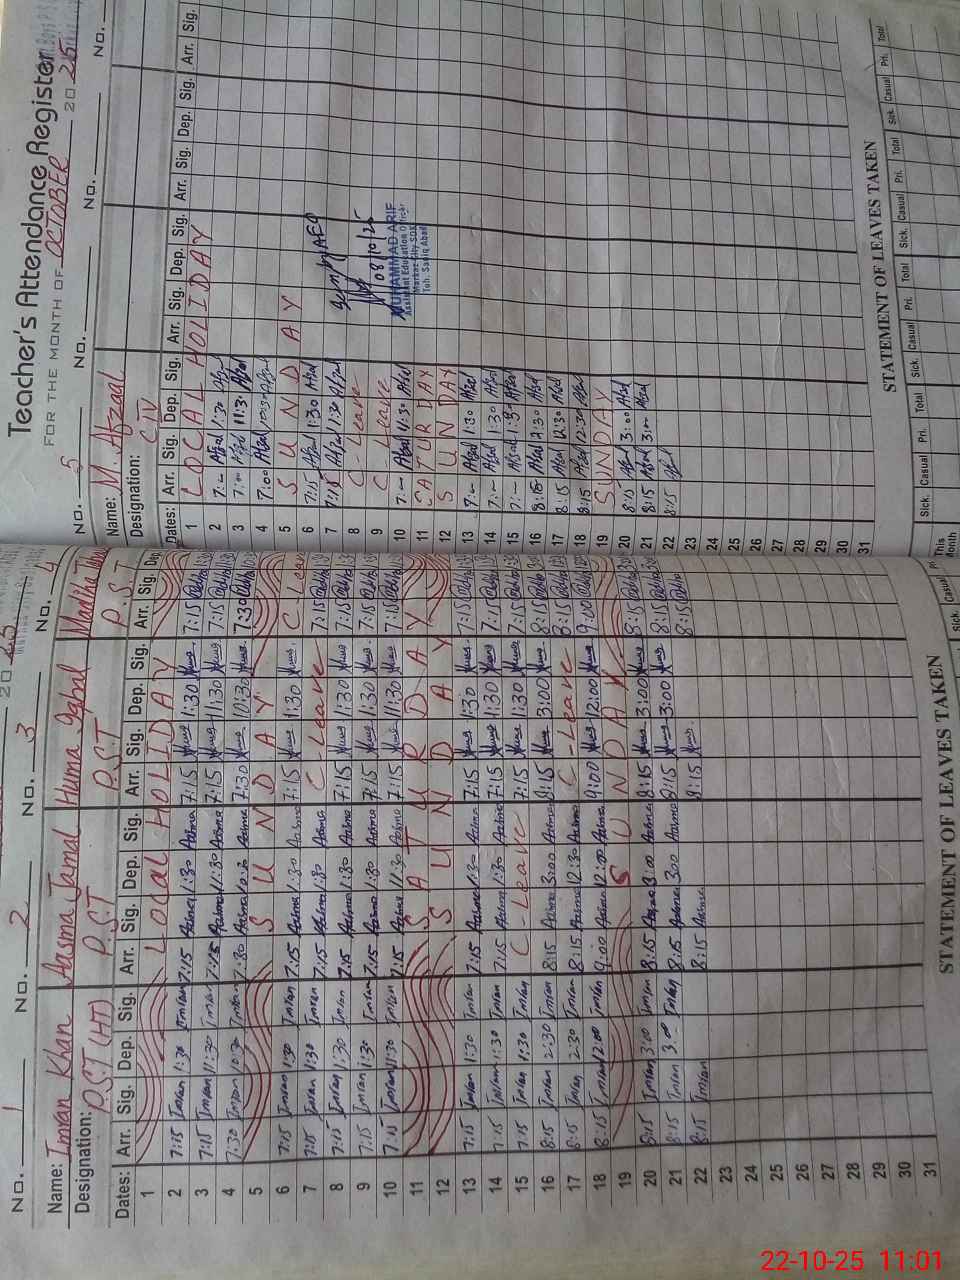 Teacher's Attendance Register
FOR THE MONTH OF OCTOBER 2025
No. 1 No. 2 No. 3 No. 4
Name: Imran Khan Aasma Jamal Huma Iqbal Madiha
Designation: P.S.T (HT) P.S.T P.S.T P.S.T
Dates: Arr. Sig. Dep. Sig. Arr. Sig. Dep. Sig. Arr. Sig. Dep. Sig. Arr. Sig. Dep.
1 LOCAL HOLIDAY
2 7:15 Imran 1:30 Imran 7:15 Aasma 1:30 Aasma 7:15 Huma 1:30 Huma 7:15
3 7:15 Imran 11:30 Imran 7:15 Aasma 11:30 Aasma 7:15 Huma 11:30 Huma 7:15
4 7:30 Imran 10:30 Imran 7:30 Aasma Aasma 7:30 Huma 10:30 Huma 7:30
5 SUNDAY
6 7:15 Imran 1:30 Imran 7:15 Aasma 1:30 Aasma 7:15 Huma 1:30 Huma C-Leave
7 7:15 Imran 1:30 Imran 7:15 Aasma 1:30 Aasma C-Leave 7:15
8 7:15 Imran 1:30 Imran 7:15 Aasma 1:30 Aasma 7:15 Huma 1:30 Huma 7:15
9 7:15 Imran 1:30 Imran 7:15 Aasma 1:30 Aasma 7:15 Huma 1:30 Huma 7:15
10 7:15 Imran 11:30 Imran 7:15 Aasma 11:30 Aasma 7:15 Huma 11:30 Huma 7:15
11 SATURDAY
12 SUNDAY
13 7:15 Imran 1:30 Imran 7:15 Aasma 1:30 Aasma 7:15 Huma 1:30 Huma 7:15
14 7:15 Imran 1:30 Imran 7:15 Aasma 1:30 Aasma 7:15 Huma 1:30 Huma 7:15
15 7:15 Imran 1:30 Imran C-Leave 7:15 Huma 1:30 Huma 7:15
16 8:15 Imran 2:30 Imran 8:15 Aasma 3:00 Aasma 8:15 Huma 3:00 Huma 8:15
17 8:15 Imran 2:30 Imran 8:15 Aasma 12:30 Aasma C-Leave 8:15
18 8:15 Imran 12:00 Imran 9:00 Aasma 12:00 Aasma 9:00 Huma 12:00 Huma 9:00
19 SUNDAY
20 8:15 Imran 3:00 Imran 8:15 Aasma 3:00 Aasma 8:15 Huma 3:00 Huma 8:15
21 8:15 Imran 3:00 Imran 8:15 Aasma 3:00 Aasma 8:15 Huma 3:00 Huma 8:15
22 8:15 Imran 8:15 Aasma 8:15 Huma 8:15
23
24
25
26
27
28
29
30
31
STATEMENT OF LEAVES TAKEN
Sick. Casual
No. 5 No. No. No.
Name: M. Afzal
Designation: C IV
Dates: Arr. Sig. Dep. Sig. Arr. Sig. Dep. Sig. Arr. Sig. Dep. Sig. Arr. Sig.
1 LOCAL HOLIDAY
2 7:— Afzal 1:30 Afzal
3 7:00 Afzal 11:30 Afzal
4 7:00 Afzal 10:30 Afzal
5 SUNDAY
6 7:15 Afzal 1:30 Afzal
7 7:15 Afzal 1:30 Afzal
8 C-Leave
9 C-Leave
10 7:— Afzal 11:30 Afzal
11 SATURDAY
12 SUNDAY
13 7:— Afzal 1:30 Afzal
14 7:— Afzal 1:30 Afzal
15 7:— Afzal 1:30 Afzal
16 8:15 Afzal 2:30 Afzal
17 8:15 Afzal 12:30 Afzal
18 8:15 Afzal 12:30 Afzal
19 SUNDAY
20 8:15 Afzal 3:00 Afzal
21 8:15 Afzal 3:00 Afzal
22 8:15 Afzal
23
24
25
26
27
28
29
30
31
AEO
08/10/25
MUHAMMAD ARIF
Assistant Education Officer
Markaz City SDK
Teh. Sadiq Abad
STATEMENT OF LEAVES TAKEN
Sick. Casual Pri. Total Sick. Casual Pri. Total Sick. Casual Pri. Total Sick. Casual Pri. Total
This Month
22-10-25 11:01